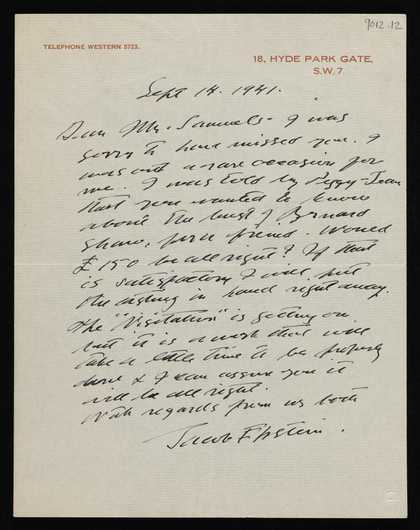 9012.12
TELEPHONE WESTERN 5723.
18, HYDE PARK GATE,
S.W. 7
Sept 14. 1941.
Dear Mr. Samuels - I was
sorry to have missed you. I
was out a rare occasion for
me. I was told by Peggy-Jean
that you wanted to know
about the bust of Bernard
Shaw, for a friend. Would
£150 be all right? If that
is satisfactory I will put
the casting in hand right away.
The "Visitation" is getting on
but it is a work that will
take a little time to be properly
done & I can assure you it
will be all right.
With regards from us both
Jacob Epstein.